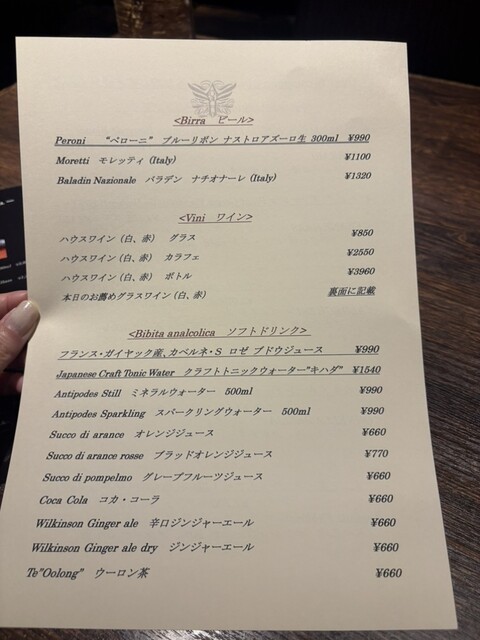 <Birra ビール>
Peroni "ペローニ" ブルーリボン ナストロアズーロ生 300ml ¥990
Moretti モレッティ (Italy) ¥1100
Baladin Nazionale バラデン ナチオナーレ (Italy) ¥1320
<Vini ワイン>
ハウスワイン (白、赤) グラス ¥850
ハウスワイン (白、赤) カラフェ ¥2550
ハウスワイン (白、赤) ボトル ¥3960
本日のお薦めグラスワイン (白、赤) 裏面に記載
<Bibita analcolica ソフトドリンク>
フランス・ガイヤック産、カベルネ・S ロゼ ブドウジュース ¥990
Japanese Craft Tonic Water クラフトトニックウォーター"キハダ" ¥1540
Antipodes Still ミネラルウォーター 500ml ¥990
Antipodes Sparkling スパークリングウォーター 500ml ¥990
Succo di arance オレンジジュース ¥660
Succo di arance rosse ブラッドオレンジジュース ¥770
Succo di pompelmo グレープフルーツジュース ¥660
Coca Cola コカ・コーラ ¥660
Wilkinson Ginger ale 辛口ジンジャーエール ¥660
Wilkinson Ginger ale dry ジンジャーエール ¥660
Te"Oolong" ウーロン茶 ¥660